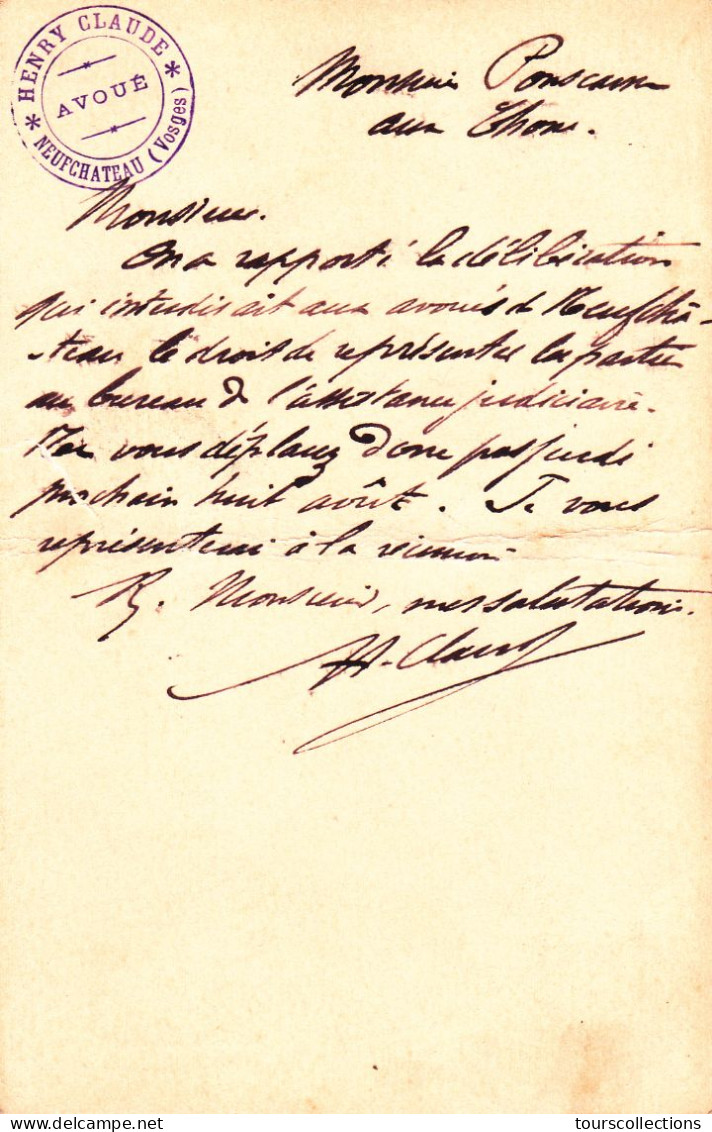 HENRY CLAUDE
AVOUÉ
NEUFCHATEAU (Vosges)
Monsieur
aux Thons.
Monsieur.
On a rapporté la délibération
qui interdisait aux avoués de Neufchâ-
-teau le droit de représenter les parties
au bureau de l'assistance judiciaire.
Ne vous déplacez donc pas jeudi
prochain huit août. Je vous
représenterai à la réunion
R. Monsieur, mes salutations.
H. Claude
delcampe.net
tourscollections